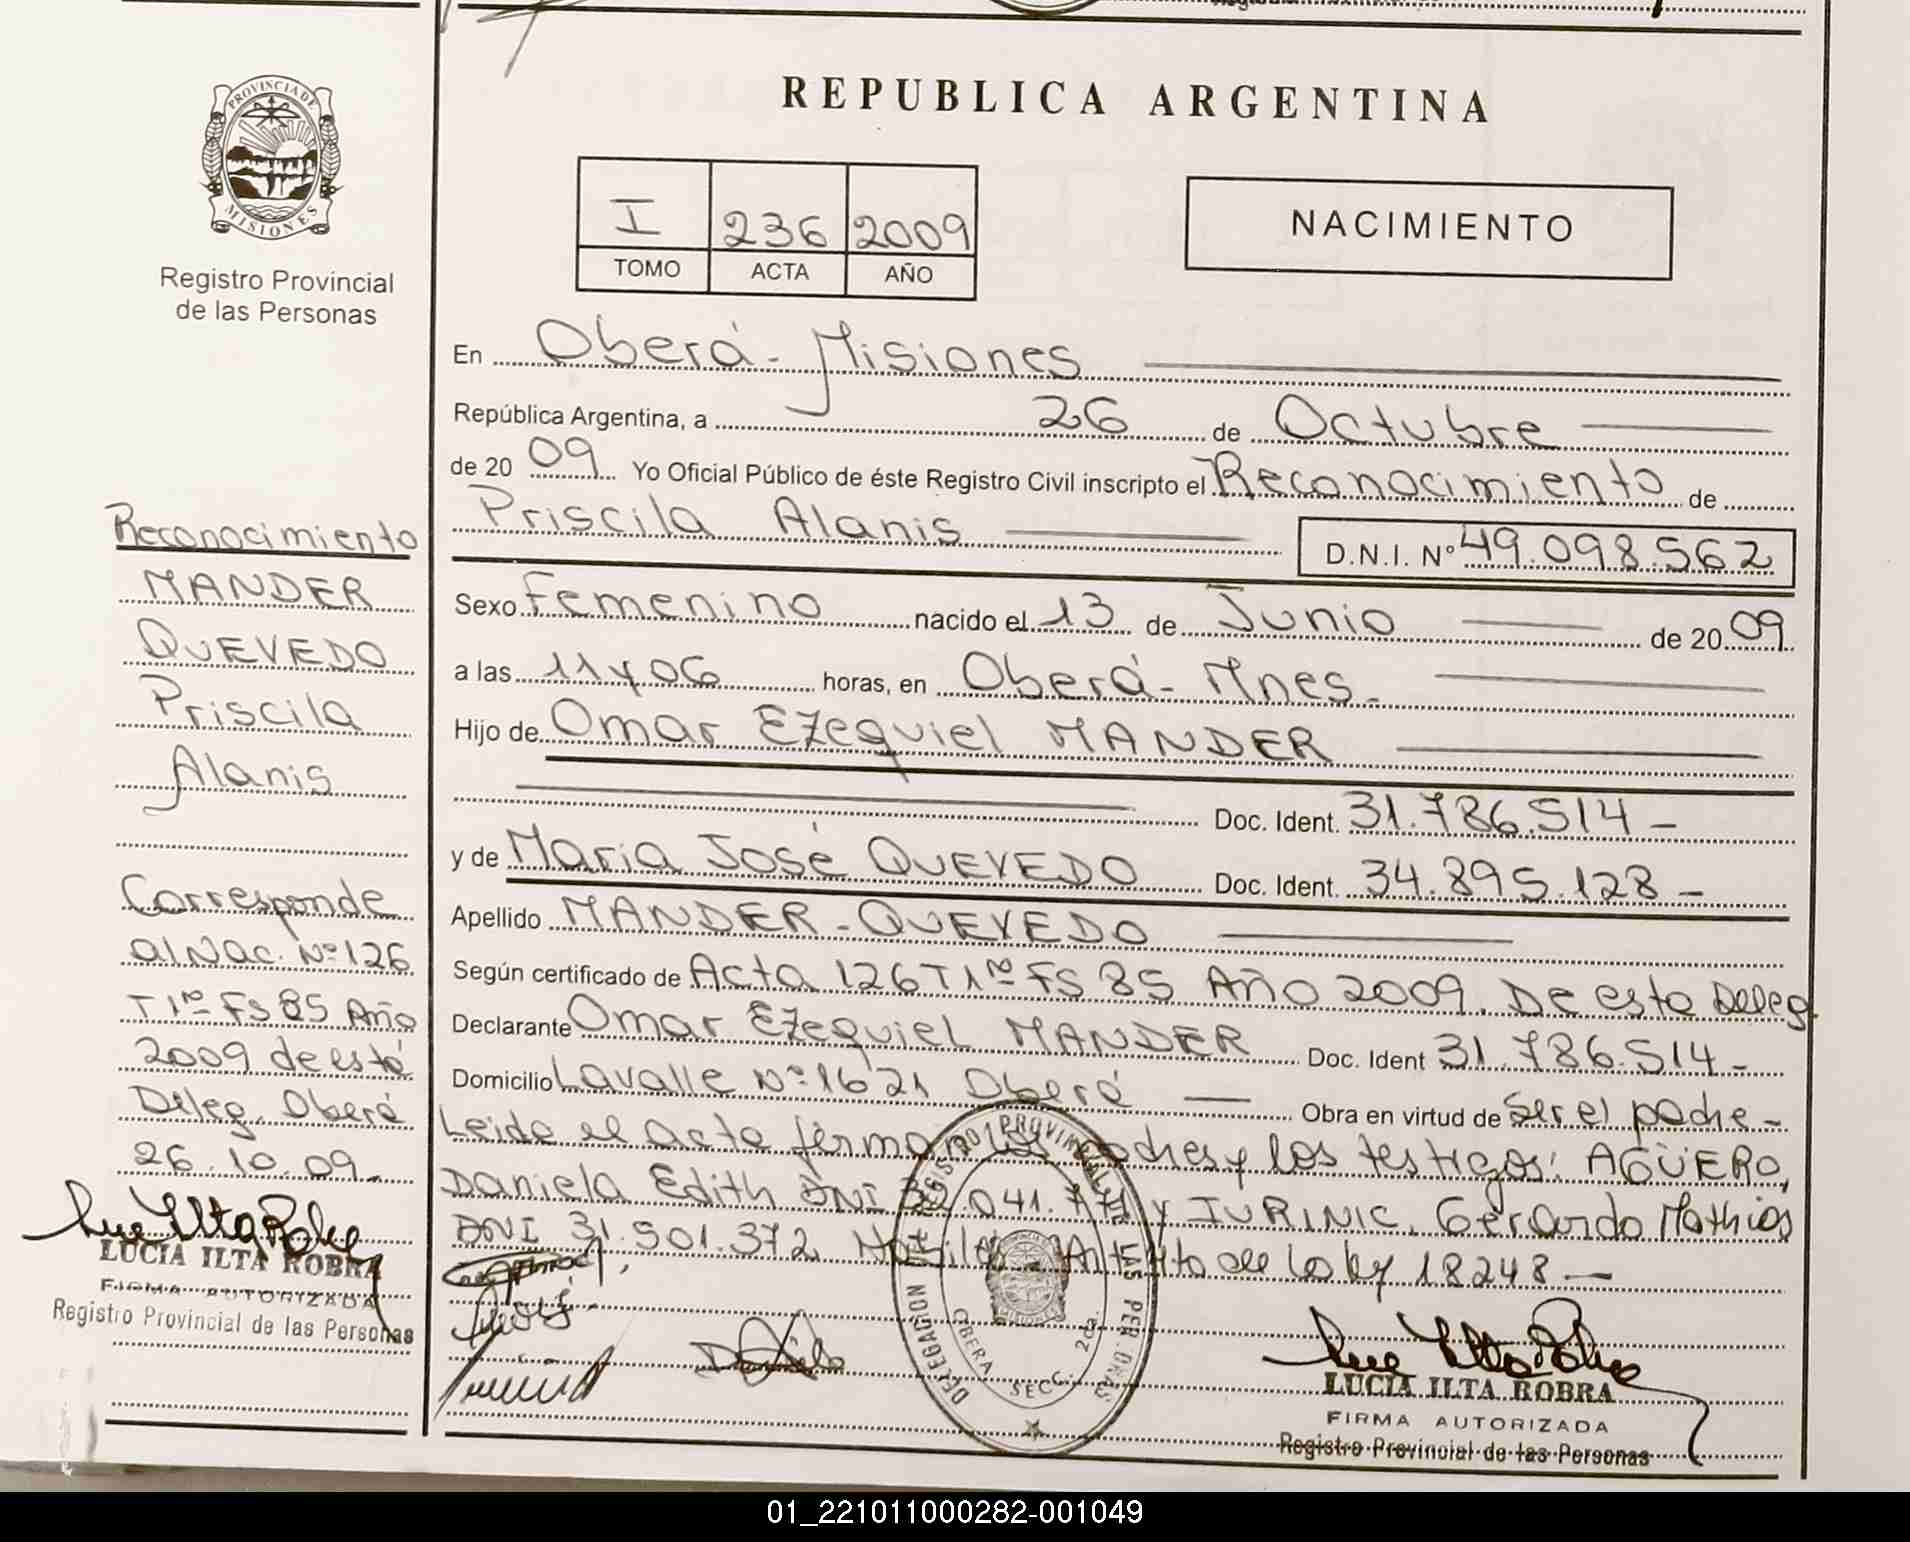 PROVINCIA DE
MISIONES
Registro Provincial
de las Personas
Reconocimiento
MANDER
QUEVEDO
Priscila
Alanis
Corresponde
al Nac. Nº 126
T 1º FS 85 Año
2009 de está
Deleg. Oberá
26.10.09.
LUCIA ILTA ROBRA
FIRMA AUTORIZADA
Registro Provincial de las Personas
REPUBLICA ARGENTINA
I 236 2009
TOMO ACTA AÑO
NACIMIENTO
En Oberá - Misiones
República Argentina, a 26 de Octubre
de 2009 Yo Oficial Público de éste Registro Civil inscripto el Reconocimiento de
Priscila Alanis D.N.I. Nº 49.098.562
Sexo Femenino nacido el 13 de Junio de 2009
a las 11 y 06 horas, en Oberá - Mnes.
Hijo de Omar Ezequiel MANDER
Doc. Ident. 31.786.514 -
y de Maria José QUEVEDO Doc. Ident. 34.895.128 -
Apellido MANDER - QUEVEDO
Según certificado de Acta 126 T 1º FS 85 Año 2009. De esta Deleg
Declarante Omar Ezequiel MANDER Doc. Ident 31.786.514 -
Domicilio Lavalle Nº 1621 Oberá Obra en virtud de Ser el padre -
Leida el acta firman los padres y los testigos: AGÜERO,
Daniela Edith DNI 32.041.771 y IURINIC, Gerardo Mathias
DNI 31.501.372 de la ley 18248 —
DELEGACION REGISTRO PROVINCIAL DE LAS PERSONAS
OBERA SECC. 2da.
LUCIA ILTA ROBRA
FIRMA AUTORIZADA
Registro Provincial de las Personas
01_221011000282-001049